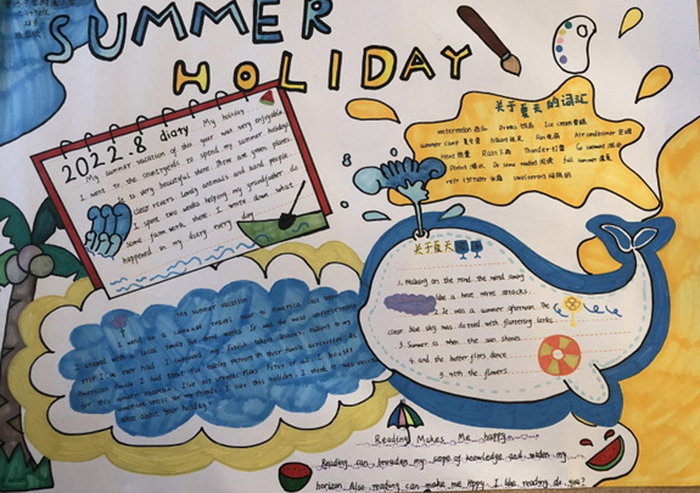 SUMMER
HOLIDAY
2022.8 diary My holiday
My summer vacation of this year was very enjoyable
I went to the countryside to spend my summer holidays
It is very beautiful there There are green plants,
clear rivers lovely animals and kind people.
I spent two weeks helping my grandfather do
some farm work there. I wrote down what
happened in my diary every day
关于夏天的词汇
watermelon 西瓜 Drinks 饮品 Ice cream 雪糕
summer camp 夏令营 Fan 电扇 Air conditioner 空调
Heat 热量 Rain 下雨 Thunder 打雷
Sweat Do some reading 阅读 full summer 盛夏
sweltering
关于夏天
1. Walking on the road. the wind
like a heat wave attacks.
2. It was a summer afternoon. The
clear blue sky was dotted with fluttering larks.
3. Summer is when the sun shines
4. and the butterflies dance
5. with the flowers.
My summer vacation
I went on a language travel tour to America last
I stayed with a local family for three weeks It was the most unforgettable
trip I've ever had. I improved my English talked to my
American family I had great fun taking part in their family activities
for this summer vacation. I've got several
american for my friends. I like this holiday. I think it was
what about your holiday?
Reading Makes Me happy
Reading can broaden my scope of knowledge and widen my
horizon. Also reading can make me happy. I like reading. do you?